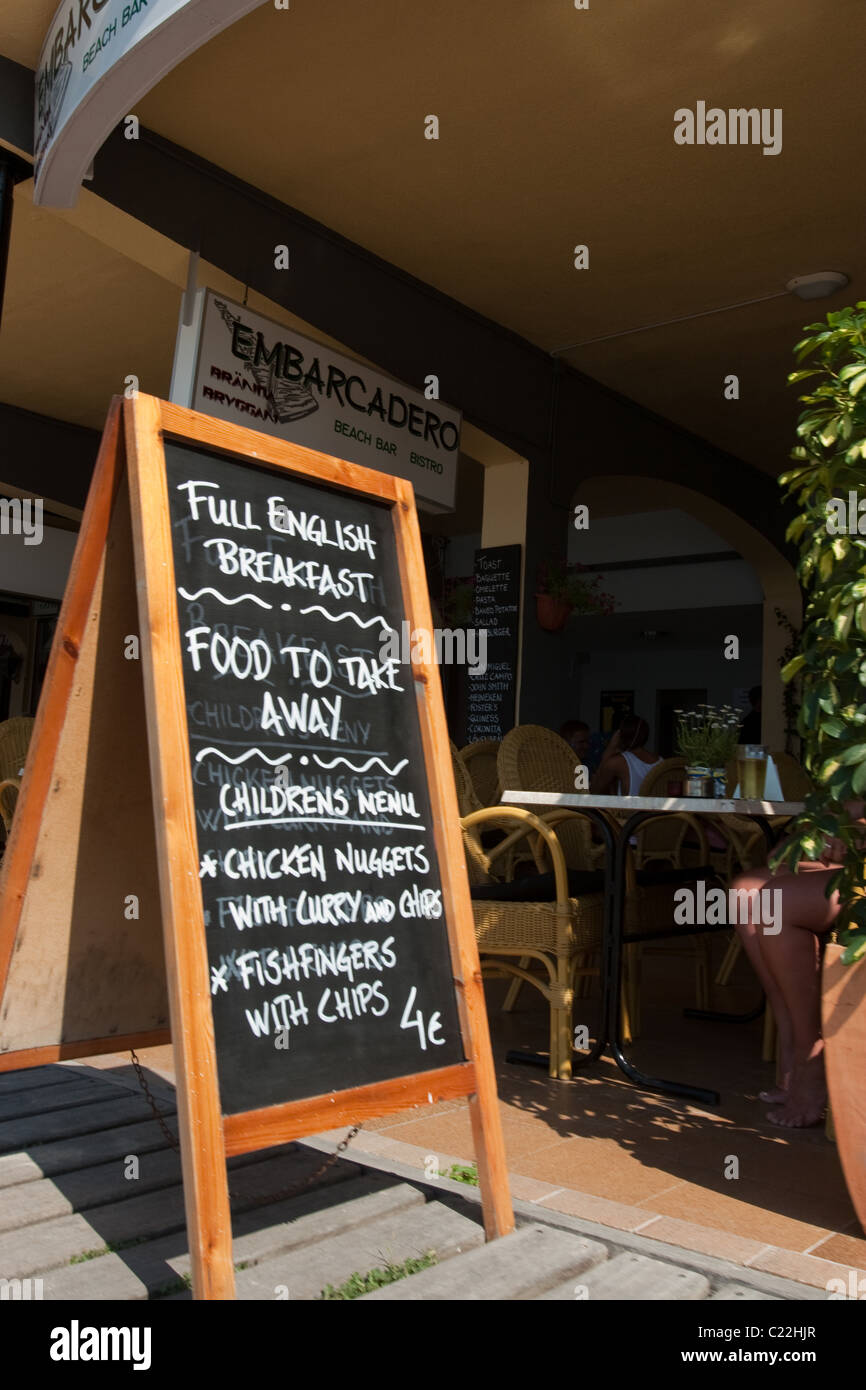 EMBARC
BEACH BAR
EMBARCADERO
BRÄNDA
BRYGGAN
BEACH BAR BISTRO
FULL ENGLISH
BREAKFAST
FOOD TO TAKE
AWAY
CHILDRENS MENU
* CHICKEN NUGGETS
WITH CURRY AND CHIPS
* FISHFINGERS
WITH CHIPS 4€
- TOAST
- BAGUETTE
- OMELETTE
- PASTA
- BAKED POTATOE
- SALAD
BURGER
MIGUEL
CRUZ CAMPO
JOHN SMITH
HEINEKEN
FOSTER'S
GUINESS
CORONITA
alamy
a
alamy
Image ID: C22HJR
www.alamy.com